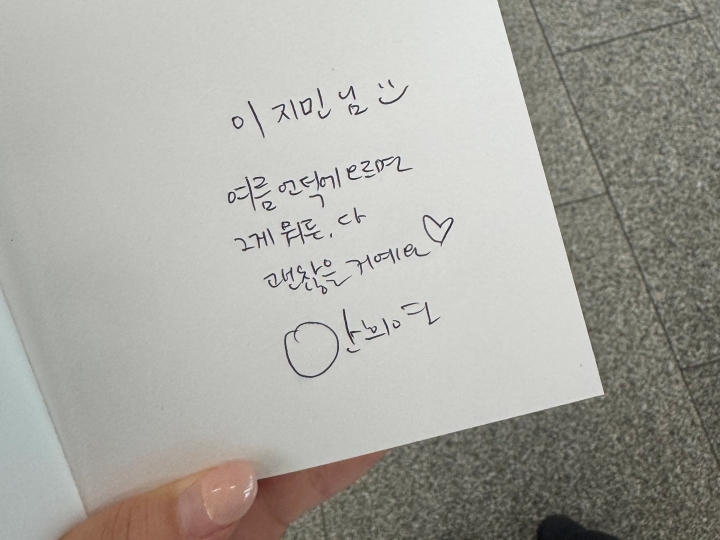 이 지민 님
여름 언덕에 오르면
그게 뭐든, 다
괜찮을 거예요 ♡
안희연